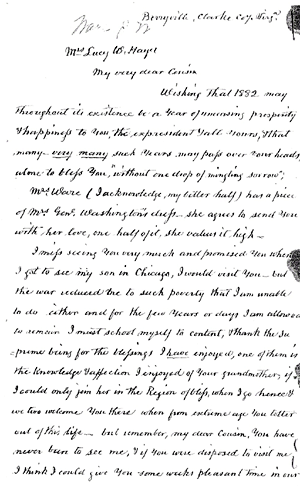 Berryville, Clarke Coy. Virga
Mrs Lucy W. Hayes
My very dear Cousin
Wishing that 1882 may
throughout its existence be a year of unceasing prosperity
& happiness to You, the expresident & all Yours, & that
many - very many such Years may pass over Your heads,
alone to bless You, "without one drop of mingling sorrow";
Mrs. Ware (I acknowledge, my better half) has a piece
of Mrs. Genl. Washington's dress - she agrees to send You
with her love, one half of it, she values it high -
I miss seeing You very much and promised You when
I got to see my son in Chicago, I would visit You - but
the war reduced me to such poverty that I am unable
to do either and for the few Years or days I am allowed
to remain I must school myself to content, & thank the Su-
preme being for the blessings I have enjoyed, one of them is
the Knowledge & affection I enjoyed of Your grandmother, if
I could only join her in the Region of bliss, when I go hence &
we two welcome You there when from extreme age You totter
out of this life - but remember, my dear Cousin, You have
never been to see me, & if You were disposed to visit me
I think I could give You some weeks pleasant time in our